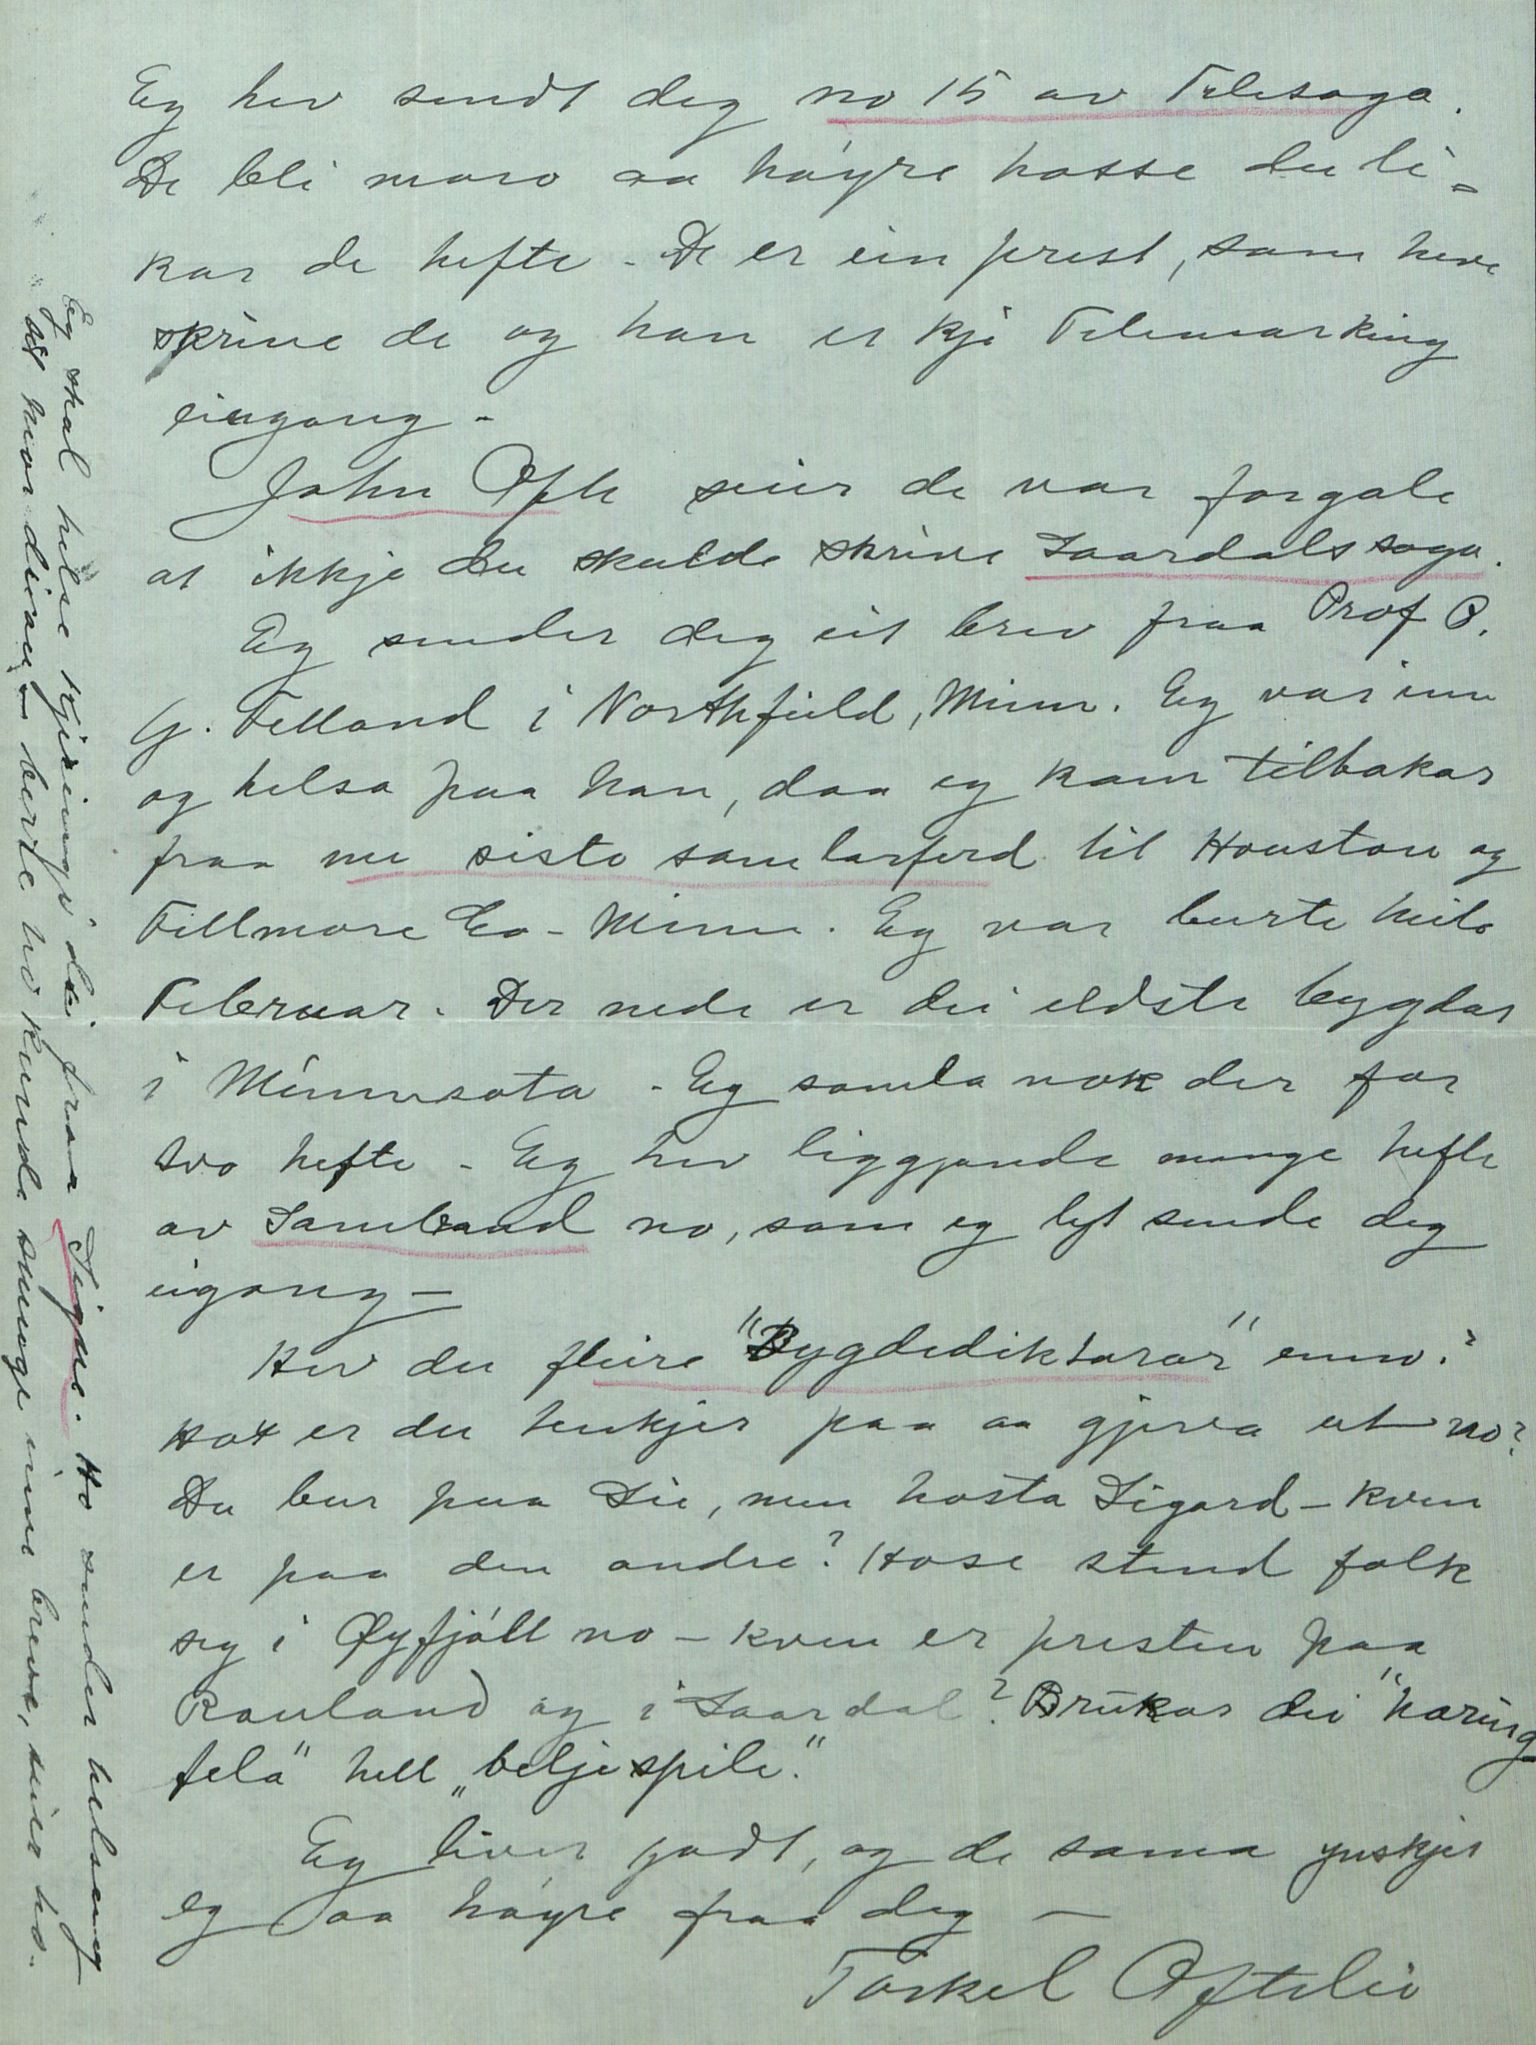 Eg hev sendt deg no 15 av Telesoga.
De bli moro aa høyre hosse du li=
kar de hefte - De er ein prest, som heve
skrive de og han er kje Telemarking
eingong -
John Ofte seier de var forgale
at ikkje du skulde skrive Laardalssoga.
Eg sender deg eit brev fraa Prof P.
G. Felland i Northfield, Minn. Eg var inn
og helsa paa han, daa eg kom tilbakar
fraa me siste samlarferd til Houston og
Fillmore Co - Minn. Eg var burte heile
Februar. Der nede er dei eldste bygdar
i Minnesota - Eg samla nok der for
tvo hefte - Eg hev liggjande mange hefte
av Samband no, som eg lyt sende deg
eigong -
Hev du fleire "Bygdediktarar" enno?
Hot er du tenkjer paa aa gjeva ut no?
Du bur paa Lie, men hosta Sigurd - kven
er paa den andre? Hose stend folk
seg i Øyfjøll no - kven er presten paa
Rauland og i Laardal? Brukar dei "haring
fela" hell "beljespile."
Eg liver godt, og de sama ynskjer
eg aa høyre fraa deg -
Torkel Oftelie
Eg skal helse kjeringi di fraa Signe. Ho sender helsing
at mor di berre ho kunde smoge inn breve, seier ho.